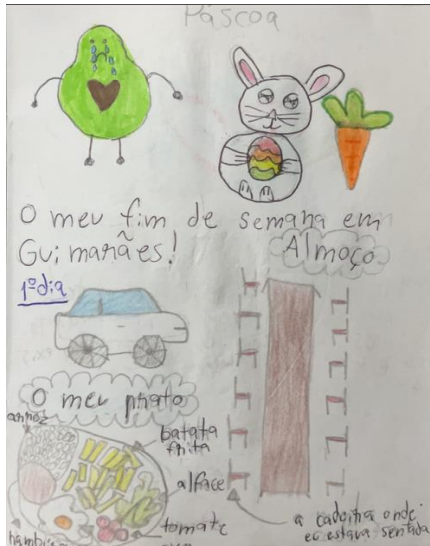 Páscoa
O meu fim de semana em
Guimarães!
Almoço
1º dia
O meu prato
arroz
batata
frita
alface
tomate
a cadeirinha onde
eu estava sentada